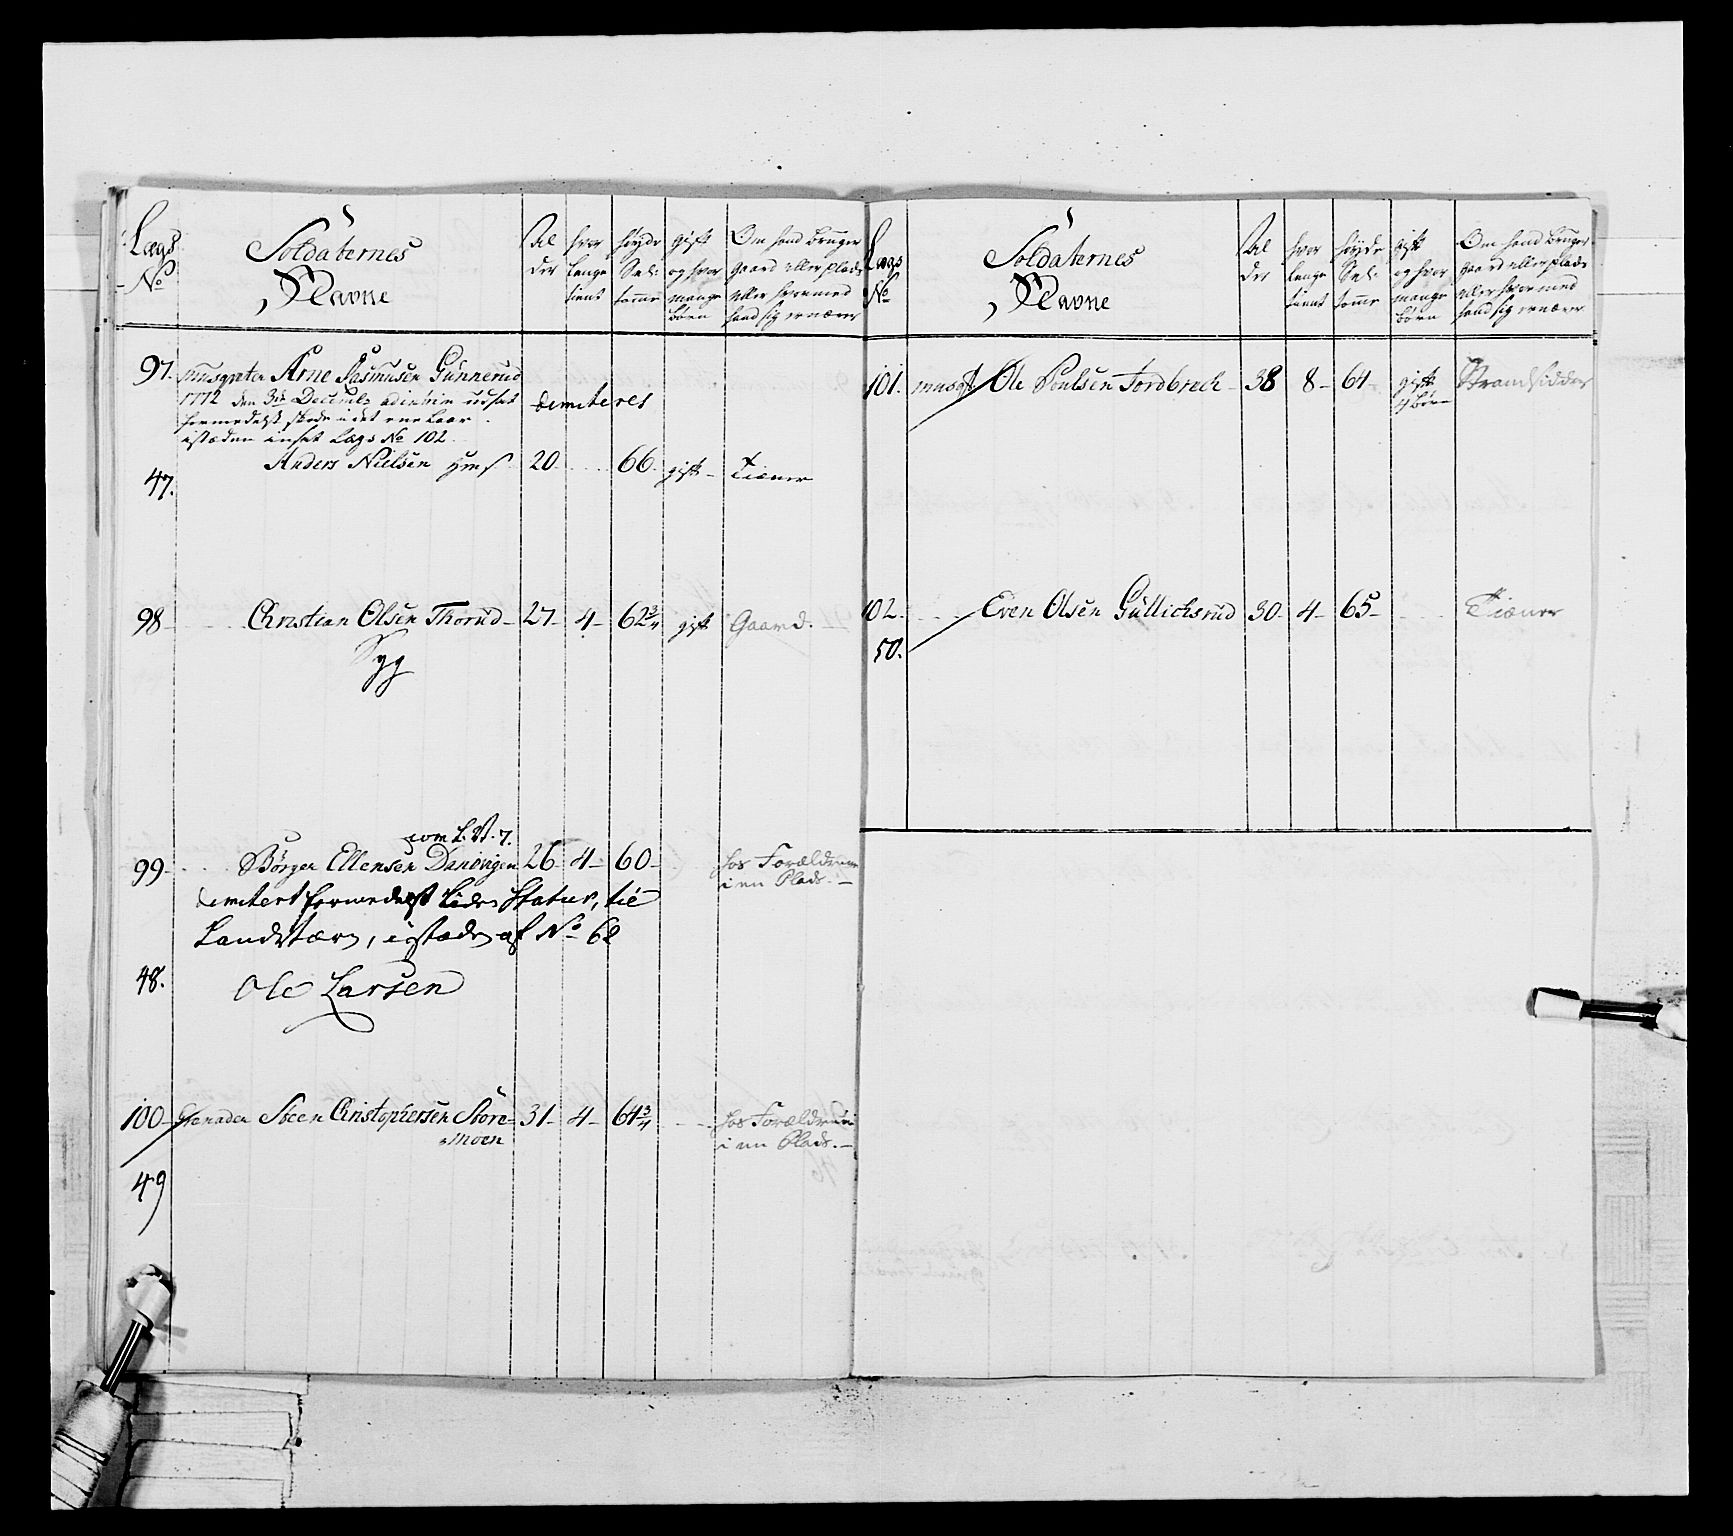 Lægs No
Soldaternes Navne
Alder
hvor længe tient
høyde Sal: tomme
gift og hvor mange børn
Om hand bruger gaard eller plads eller hvormed hand sig ernærer
97. musqueter Arne Rasmusen Gunnerud
1772 den 3de Decemb: udsat
formedelst skade i det ene Laar
istæden insat Lægs No 102
demiteres
47. Anders Nielsen 20 66 gift Tiæner
98 Christian Olsen Thorud 27 4 62 3/4 gift Gaard.
Syg
99 Børger Ellensen Danvigen 26 4 60 hos Forældrene
i en Plads.
demitert formedelst Liden Statur, til
Landværn, istæden af No 62
48. Ole Larsen
100 Grenader Steen Christophersen Store 31 4 64 3/4 hos Forældrene
moen i en Plads.
49
Lægs No
Soldaternes Navne
Alder
hvor længe tient
høyde Sal: tomme
gift og hvor mange børn
Om hand bruger gaard eller plads eller hvormed hand sig ernærer
101. musqt Ole Poulsen Tordbrech 38 8 64 gift Strandsidder
børn
102. Even Olsen Gullichsrud 30 4 65 Tiæner
50.